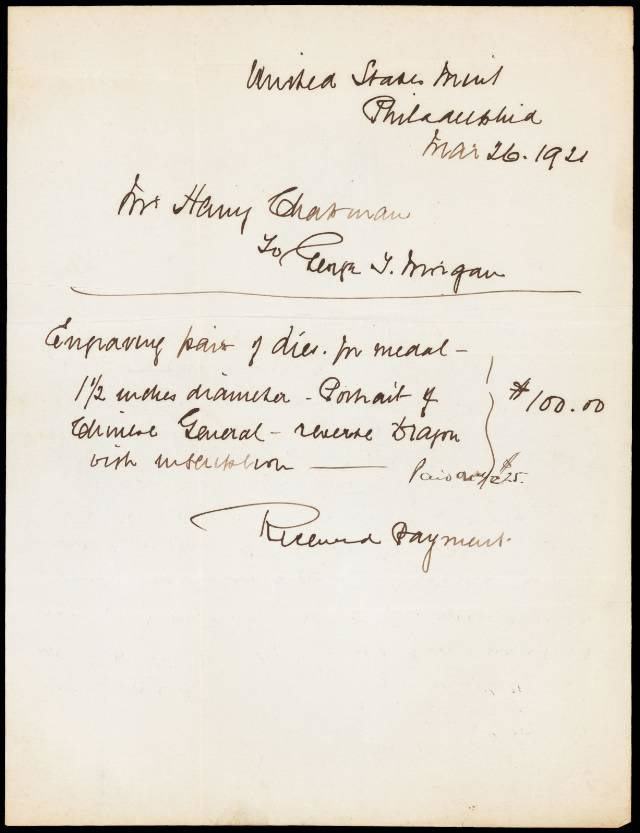 United States Mint
Philadelphia
Mar 26. 1921
Mr Henry Chapman
To George T. Morgan
Engraving pair of dies. for medal -
1 1/2 inches diameter - Portrait of
Chinese General - reverse Dragon
with inscription —
$100.00
Paid $25.
Received Payment.